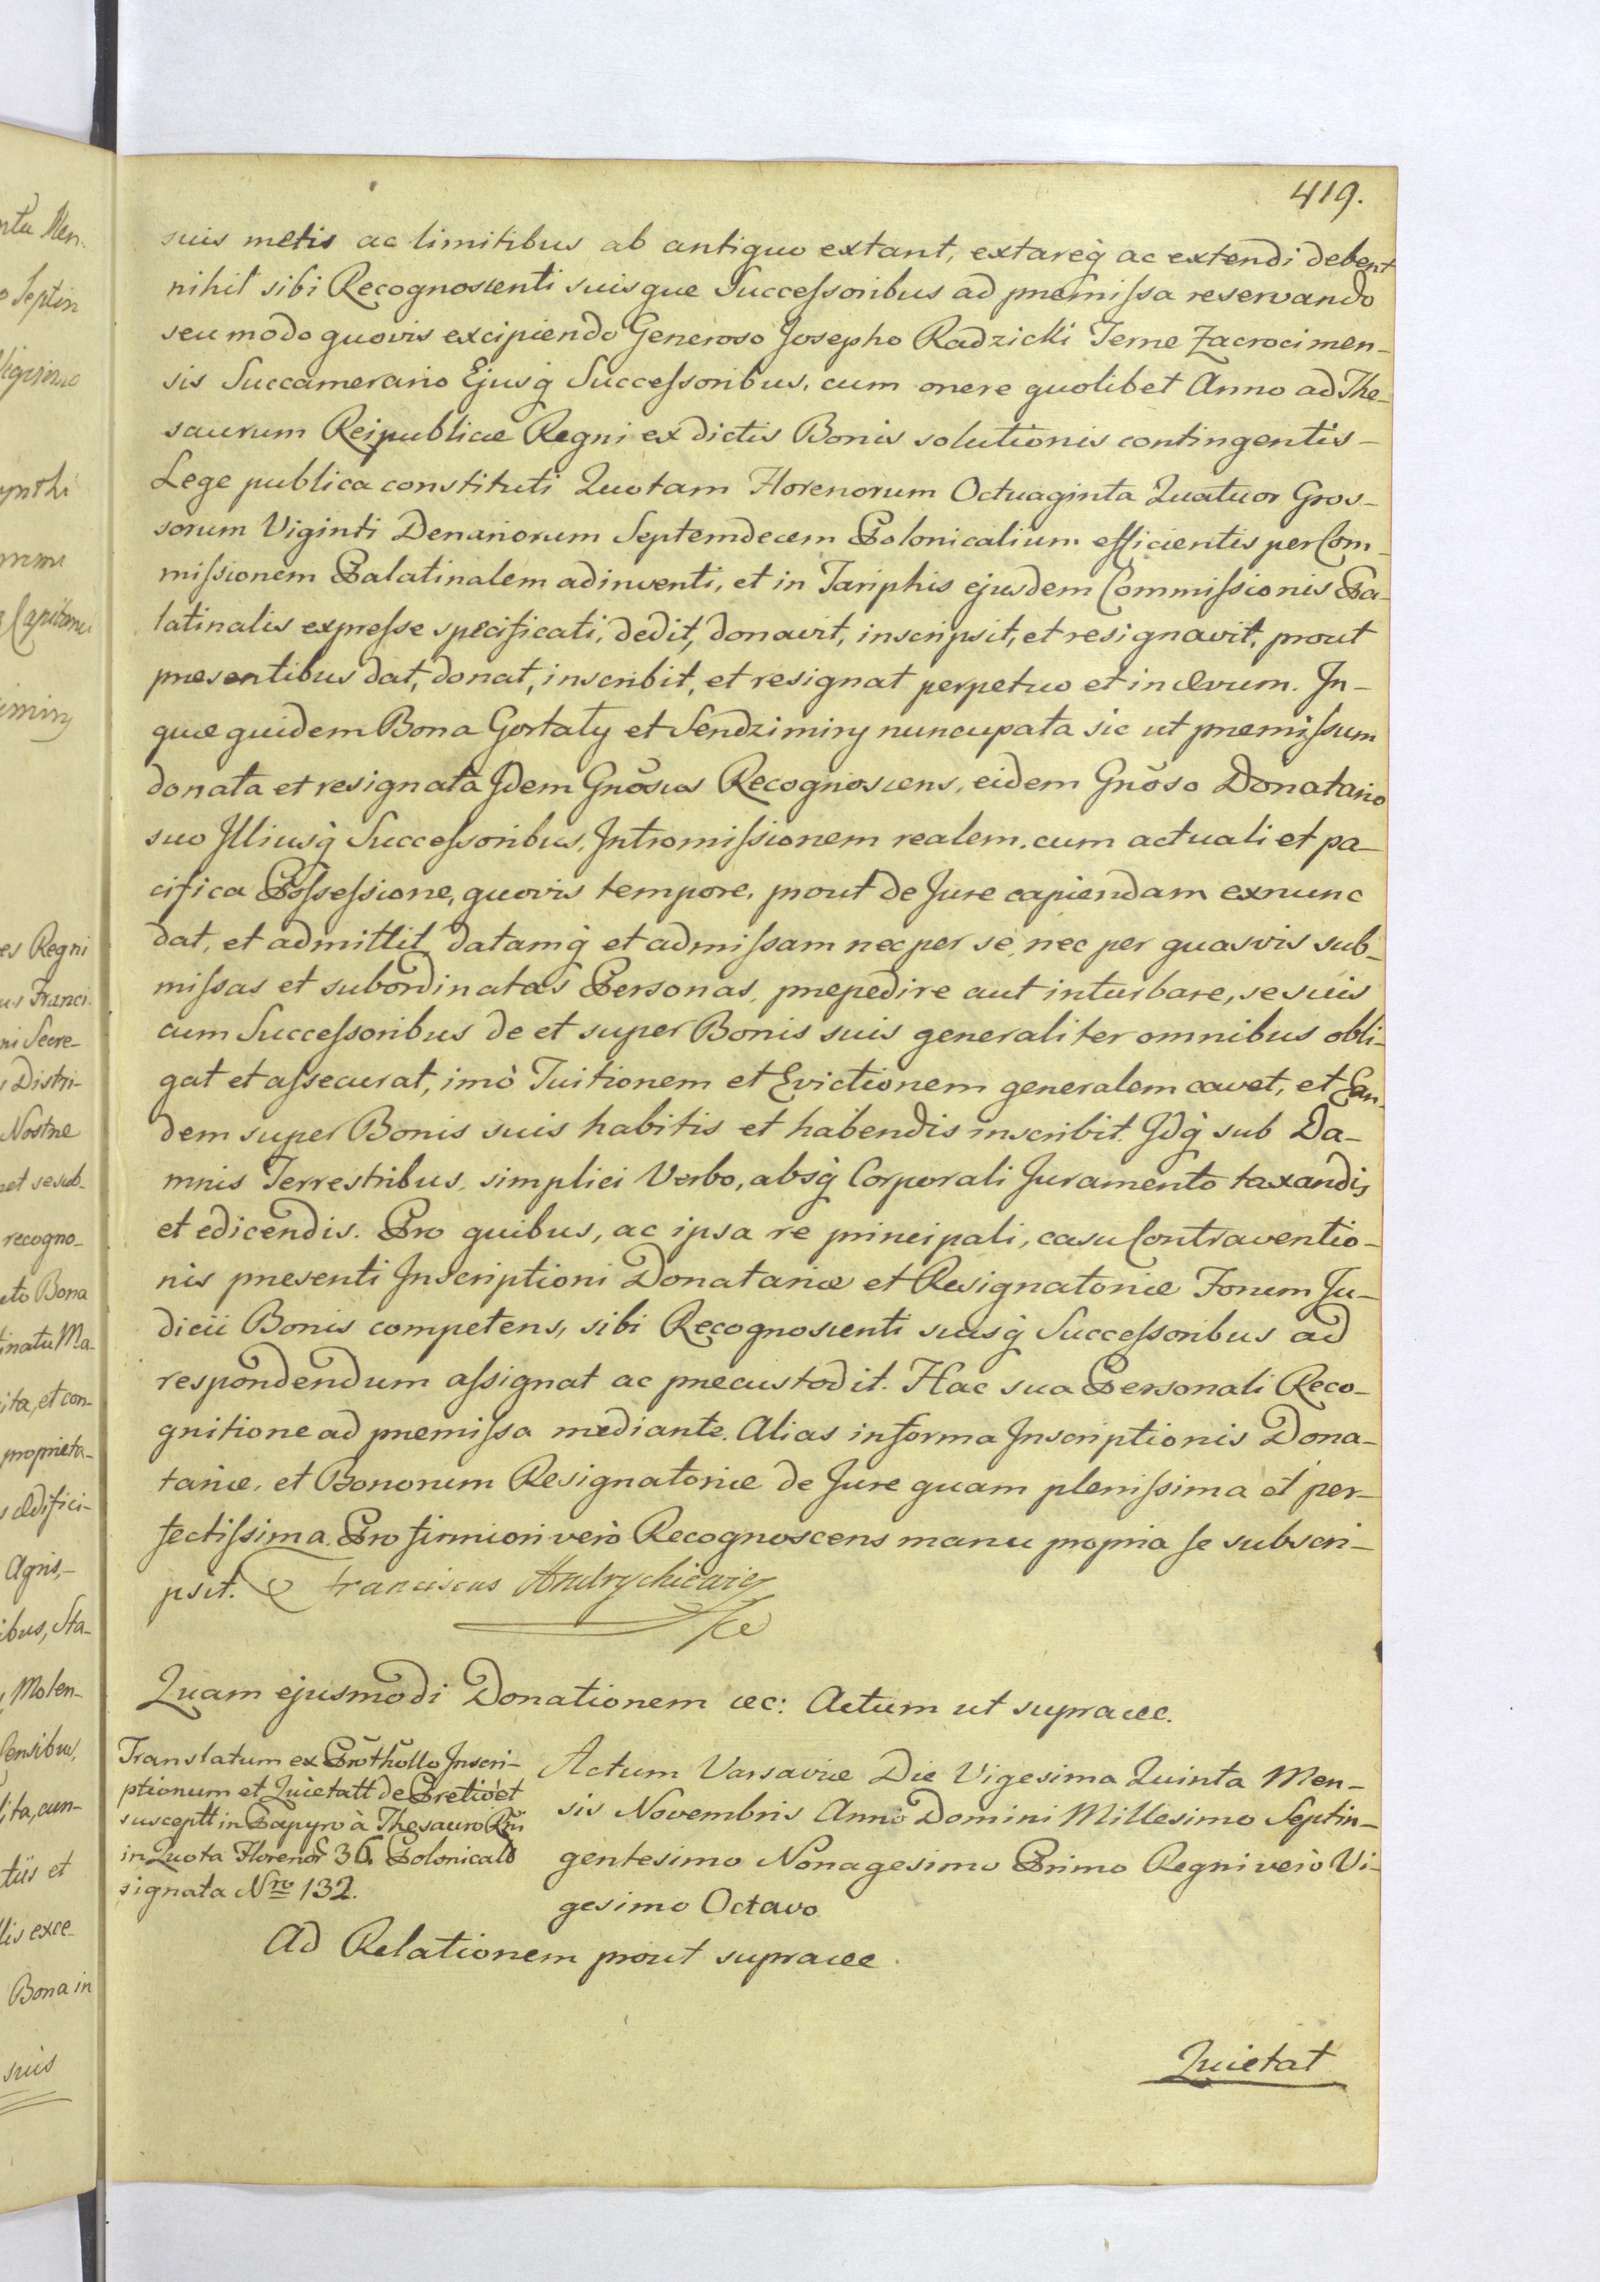 419.
suis metis ac limitibus ab antiquo extant, extareq̀ ac extendi debent
nihil sibi Recognoscenti suisque Successoribus ad præmissa reservando
seu modo quovis excipiendo Generoso Josepho Radzicki Terræ Zacrocimen-
sis Succamerario Ejusq̀ Successoribus, cum onere quolibet Anno ad The-
saurum Reipublicæ Regni ex dictis Bonis solutionis contingentis-
Lege publica constituti Quotam Florenorum Octuaginta Quatuor Gros-
sorum Viginti Denariorum Septemdecem Polonicalium efficientis per Com-
missionem Palatinalem adinventi, et in Tariphis ejusdem Commissionis Pa-
latinalis expresse specificati, dedit, donavit, inscripsit, et resignavit, prout
præsentibus dat, donat, inscribit, et resignat perpetuo et in ævum. In-
quæ quidem Bona Gortaty et Sendzimiry nuncupata sic ut præmissum
donata et resignata Idem Gnõsus Recognoscens, eidem Gnõso Donatario
suo Illiusq̀ Successoribus, Intromissionem realem, cum actuali et pa-
cifica Possessione, quovis tempore, prout de Jure capiendam exnunc
dat, et admittit, datamq̀ et admissam nec per se, nec per quasvis sub-
missas et subordinatas Personas, præpedire aut inturbare, se suis
cum Successoribus de et super Bonis suis generaliter omnibus obli-
gat et assecurat, imò Tuitionem et Evictionem generalem cavet, et Ean-
dem super Bonis suis habitis et habendis inscribit. Idq̀ sub Da-
mnis Terrestribus, simplici Verbo, absq̀ Corporali Juramento taxandis
et edicendis. Pro quibus, ac ipsa re principali, casu Contraventio-
nis præsenti Inscriptioni Donatariæ et Resignatoriæ Forum Ju-
dicii Bonis competens, sibi Recognoscenti suisq̀ Successoribus ad
respondendum assignat ac præcustodit. Hac sua Personali Reco-
gnitione ad præmissa mediante. Alias in forma Inscriptionis Dona-
tariæ, et Bonorum Resignatoriæ de Jure quam plenissima et per-
fectissima. Pro firmiori verò Recognoscens manu propria se subscri-
psit. Franciscus Andrychiewicz
Quam ejusmodi Donationem æc: Actum ut supra æc.
Translatum ex Prõthõllo Inscri-
ptionum et Quietatt de Pretio et
susceptt in Papyro à Thesauro Rñi
in Quota Florenor 36. Polonicalŏ
signata Nro 132.
Actum Varsaviæ Die Vigesima Quinta Men-
sis Novembris Anno Domini Millesimo Septin-
gentesimo Nonagesimo Primo Regni verò Vi-
gesimo Octavo
Ad Relationem prout supra æc.
Quietat